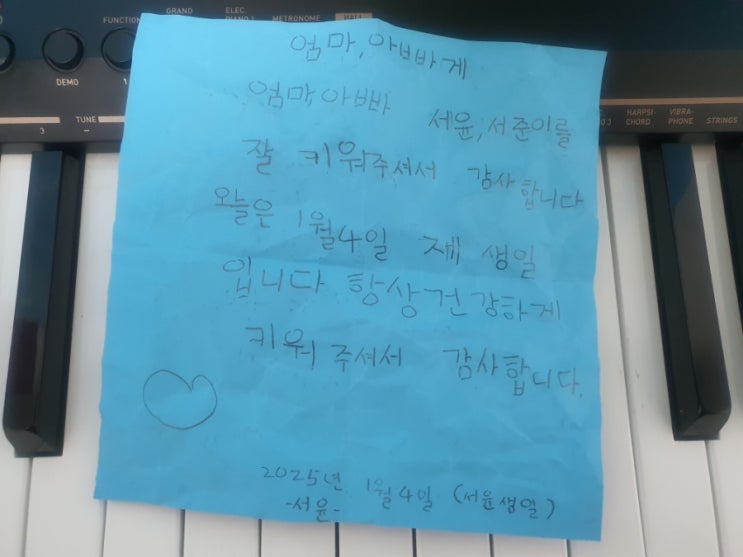 FUNCTION GRAND ELEC. METRONOME HALL
DEMO 1
TUNE
3 −
HARPSI-CHORD VIBRA-PHONE STRINGS
엄마,아빠에게
엄마,아빠 세윤,서준이를
잘 키워주셔서 감사합니다
오늘은 1월4일 제 생일
입니다 항상건강하게
키워 주셔서 감사합니다.
2025년 1월4일 (서윤생일)
-서윤-